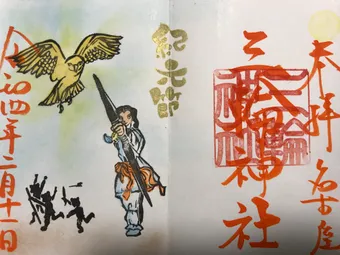 奉拝 名古屋
三輪神社
三輪神社
紀元節
令和四年二月十一日